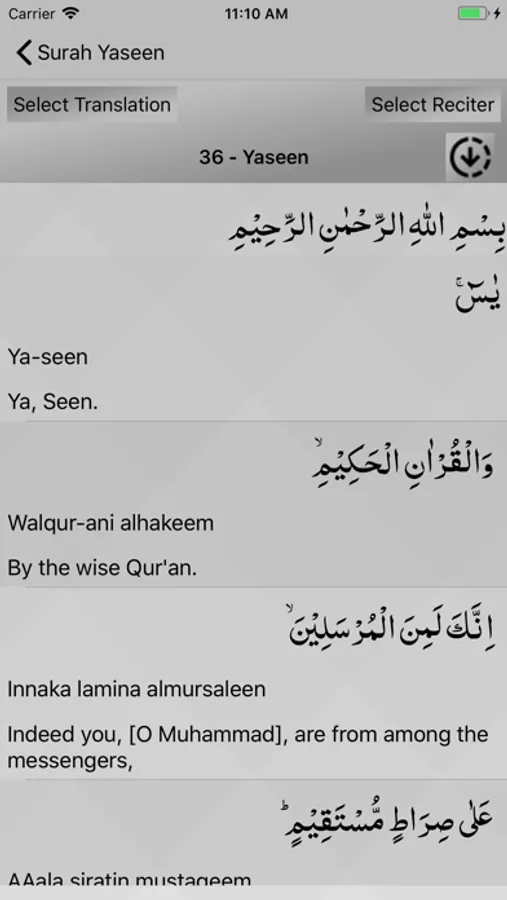 Carrier 11:10 AM
Surah Yaseen
Select Translation Select Reciter
36 - Yaseen
بِسْمِ اللّٰهِ الرَّحْمٰنِ الرَّحِيْمِ
يٰسٓ ۚ
Ya-seen
Ya, Seen.
وَالْقُرْاٰنِ الْحَكِيْمِ ۙ
Walqur-ani alhakeem
By the wise Qur'an.
اِنَّكَ لَمِنَ الْمُرْسَلِيْنَ ۙ
Innaka lamina almursaleen
Indeed you, [O Muhammad], are from among the
messengers,
عَلٰى صِرَاطٍ مُّسْتَقِيْمٍ ؕ
AAala siratin mustaqeem